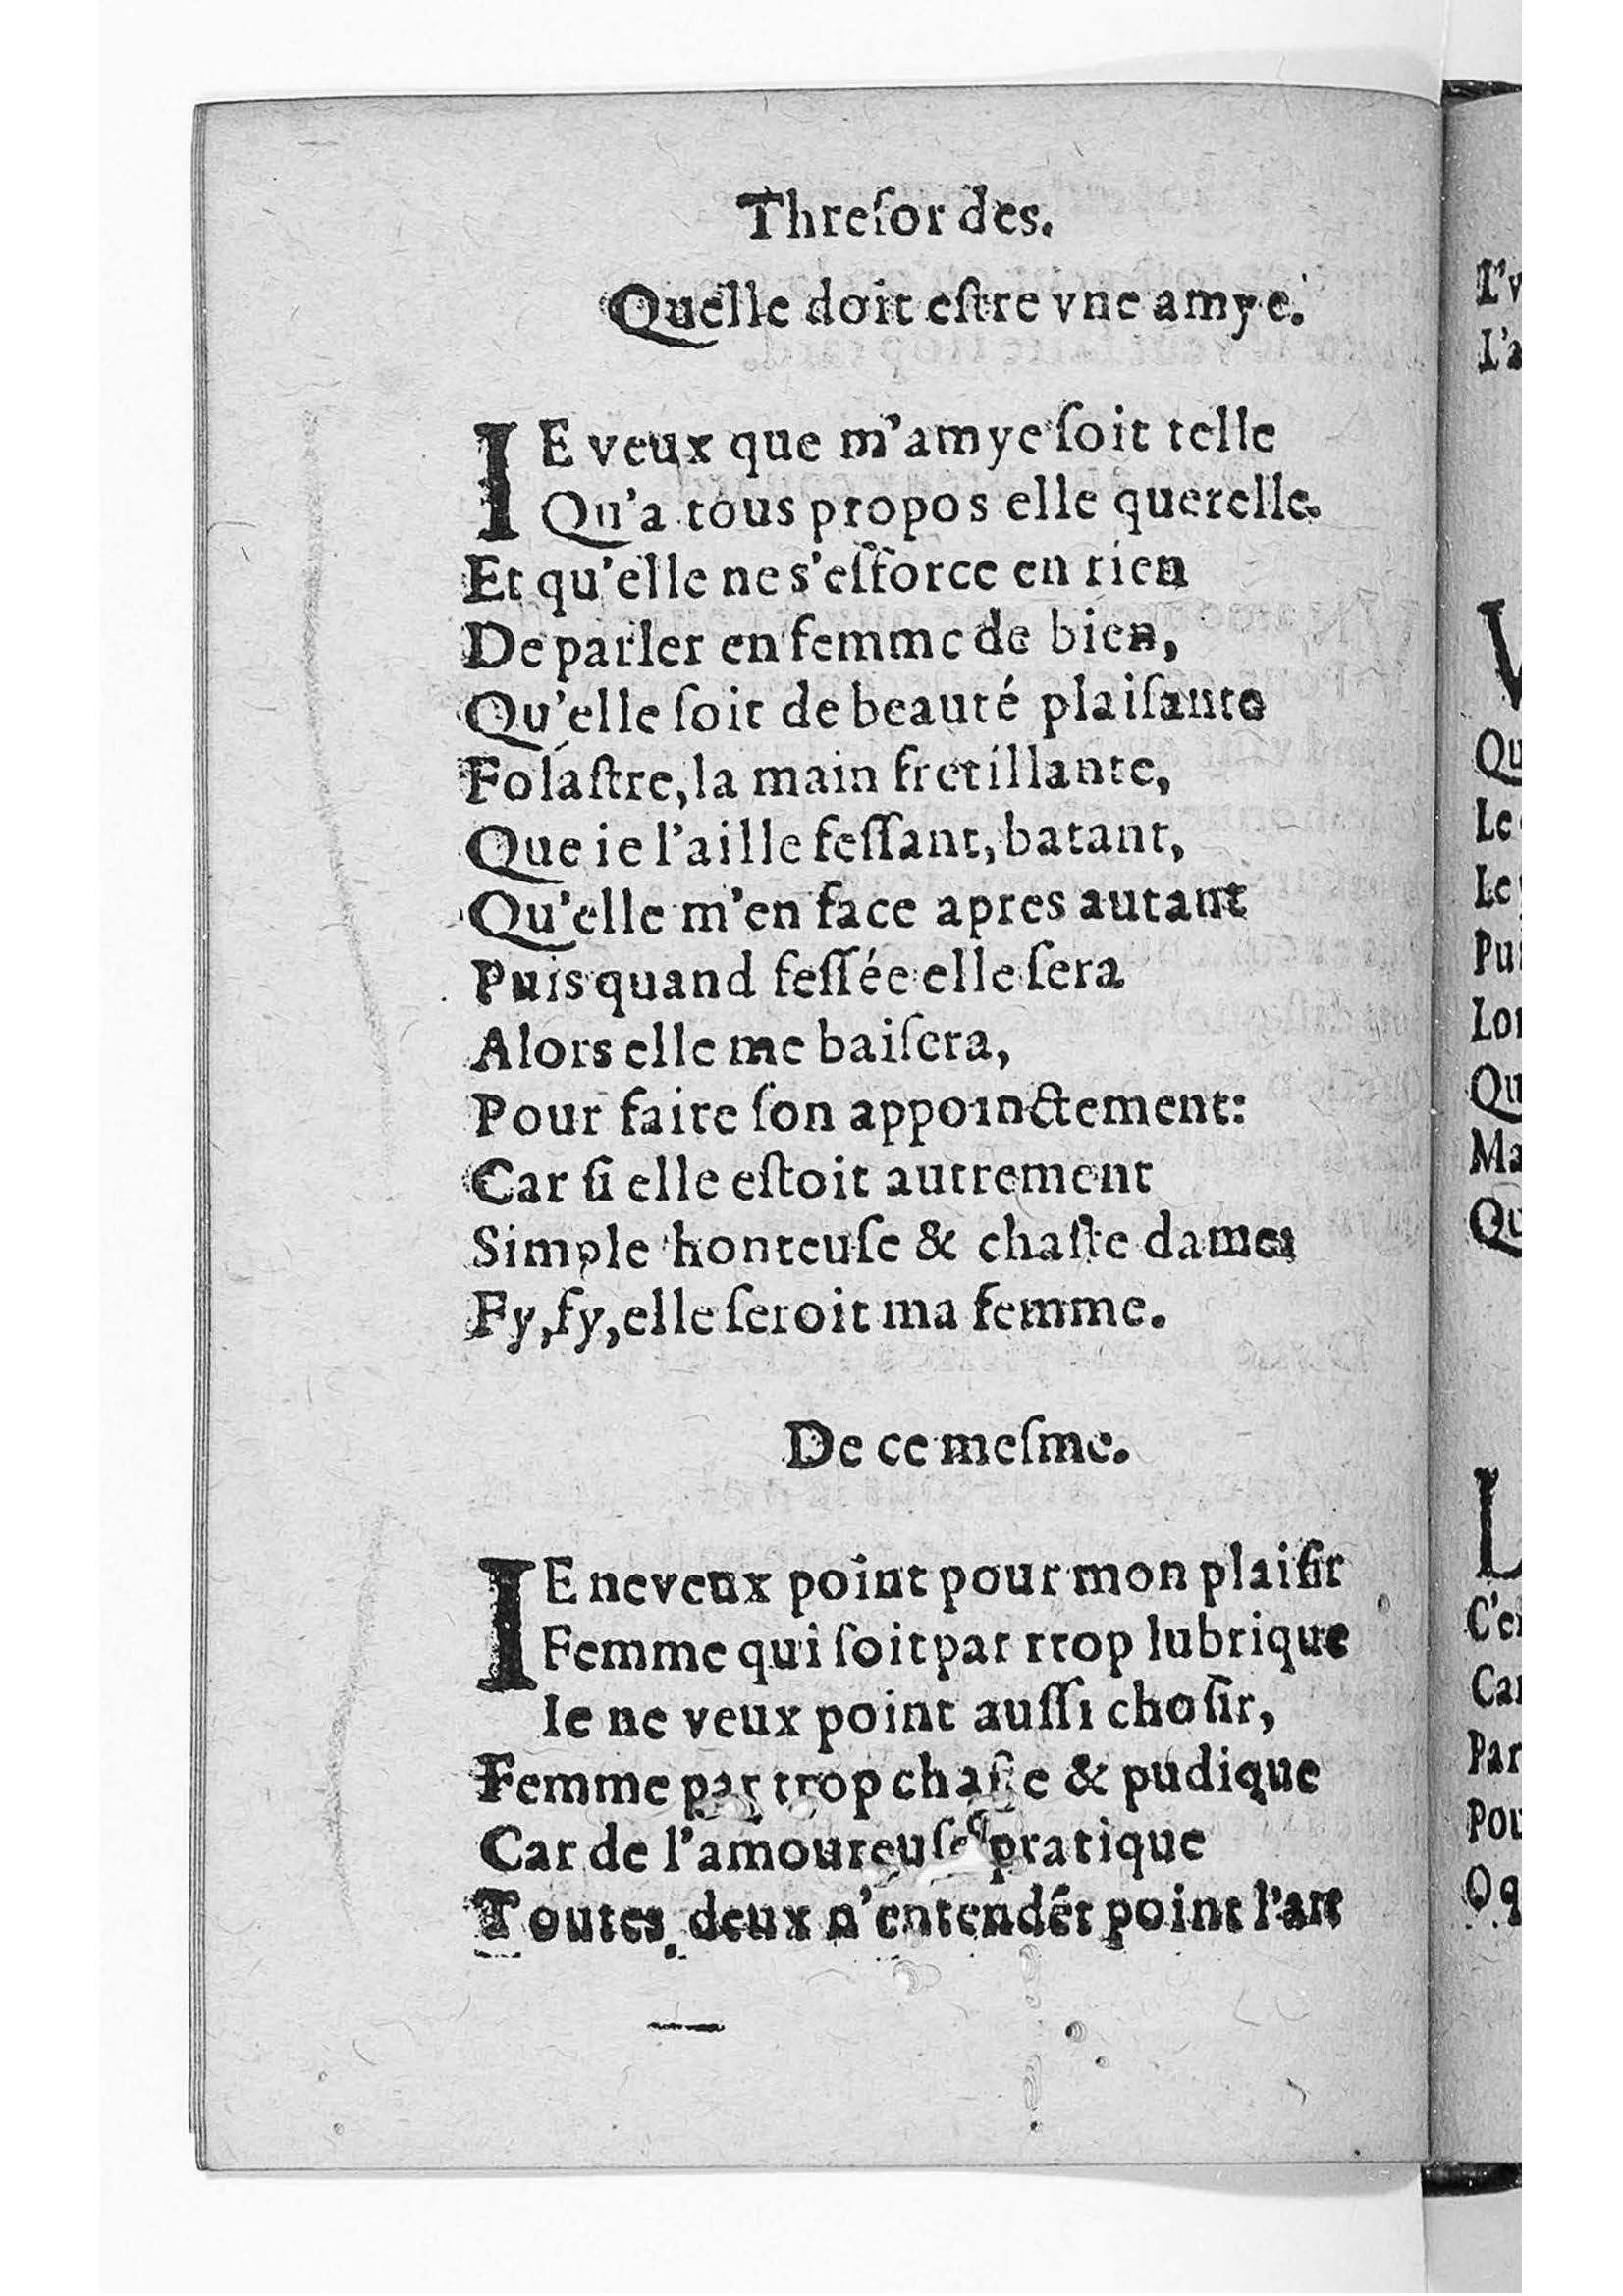 Threſor des.
Quelle doit eſtre vne amye.
IE veux que m'amye ſoit telle
Qu'a tous propos elle querelle.
Et qu'elle ne s'efforce en rien
De parler en femme de bien,
Qu'elle ſoit de beauté plaiſante
Folaſtre, la main fretillante,
Que ie l'aille feſſant, batant,
Qu'elle m'en face apres autant
Puis quand feſſée elle ſera
Alors elle me baiſera,
Pour faire ſon appoinctement:
Car ſi elle eſtoit autrement
Simple honteuſe & chaſte dames
Fy, fy, elle ſeroit ma femme.
De ce meſme.
IE ne veux point pour mon plaiſir
Femme qui ſoit par rrop lubrique
Ie ne veux point auſſi choſir,
Femme par trop chaſte & pudique
Car de l'amoureuſe pratique
Toutes deux n'entendét point l'art
L'v
L'a
V
Qu
Le
Le
Pui
Lor
Qu
Ma
Qu
L
C'e
Car
Par
Pou
O q